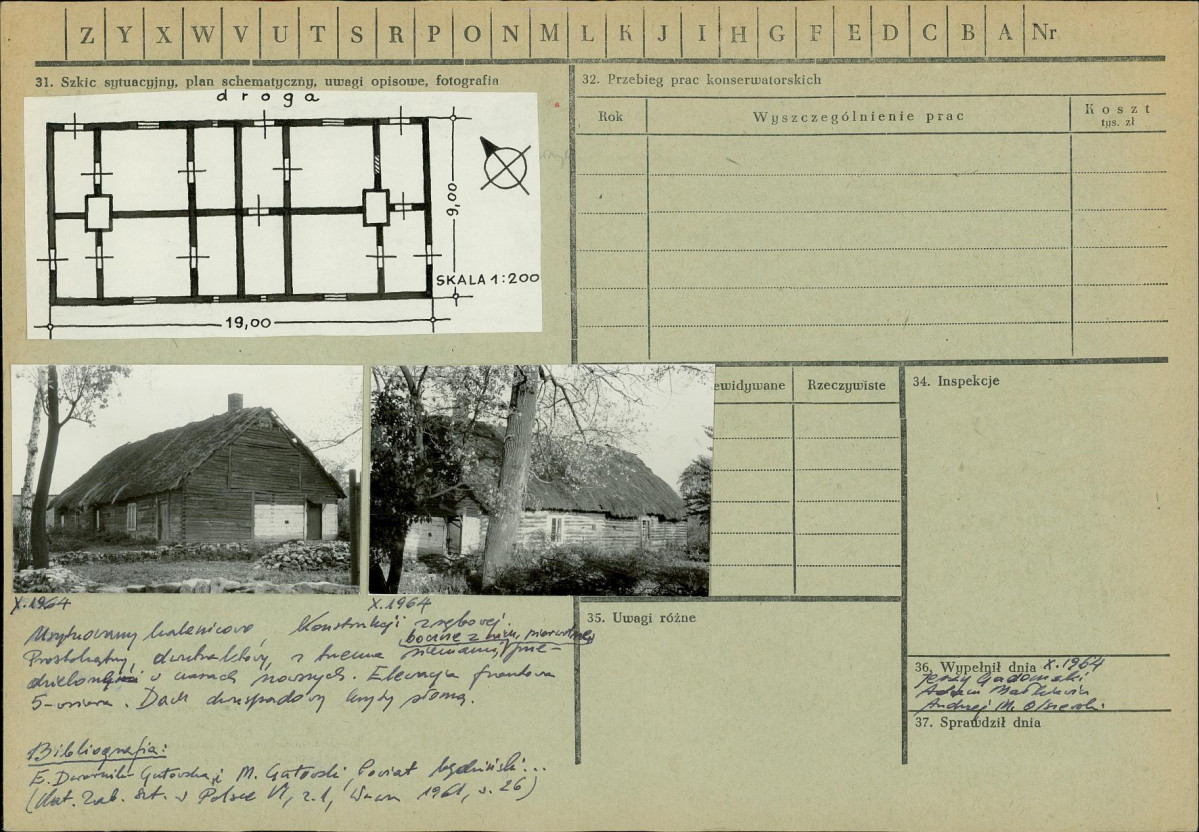 Z Y X W V U T S R P O N M L K J I H G F E D C B A Nr
31. Szkic sytuacyjny, plan schematyczny, uwagi opisowe, fotografia
droga
9,00
SKALA 1:200
19,00
32. Przebieg prac konserwatorskich
Rok
Wyszczególnienie prac
Koszt
tys. zł
ewidywane
Rzeczywiste
34. Inspekcje
X.1964
X.1964
Usytuowany kalenicowo, Konstrukcji zrębowej.
boczne z nich, pierwotnie
Prostokątny, dwutraktowy, z trzema sieniami, prze-
w czasach nowszych. Elewacja frontowa
5-osiowa. Dach dwuspadowy kryty słomą.
Bibliografia:
E. Dwornik-Gutowska, M. Gutowski, Powiat będziński...
(Kat. Zab. Szt. w Polsce VI, z.1, W-wa 1961, s. 26)
35. Uwagi różne
36. Wypełnił dnia X.1964
Jerzy Gadomski
Adam Małkiewicz
Andrzej M. Olszewski
37. Sprawdził dnia